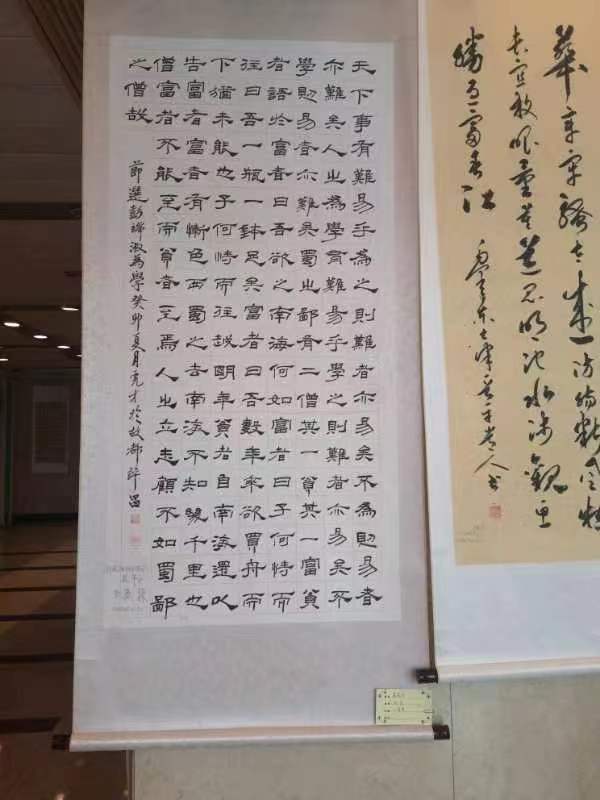 天下事有難易乎為之則難者亦易矣不為則易者
亦難矣人之為學有難易乎學之則難者亦易矣不
學則易者亦難矣蜀之鄙有二僧其一貧其一富貧
者語於富者曰吾欲之南海何如富者曰子何恃而
往曰吾一瓶一鉢足矣富者曰吾數年來欲買舟而
下猶未能也子何恃而往越明年貧者自南海還以
告富者富者有慚色西蜀之去南海不知幾千里也
僧富者不能至而貧者至焉人之立志顧不如蜀鄙
之僧哉
節選彭端淑為學癸卯夏月亮才於故都許昌
華章牢騷太盛防腸斷風物
長宜放眼量莫道昆明池水淺觀魚
勝過富春江